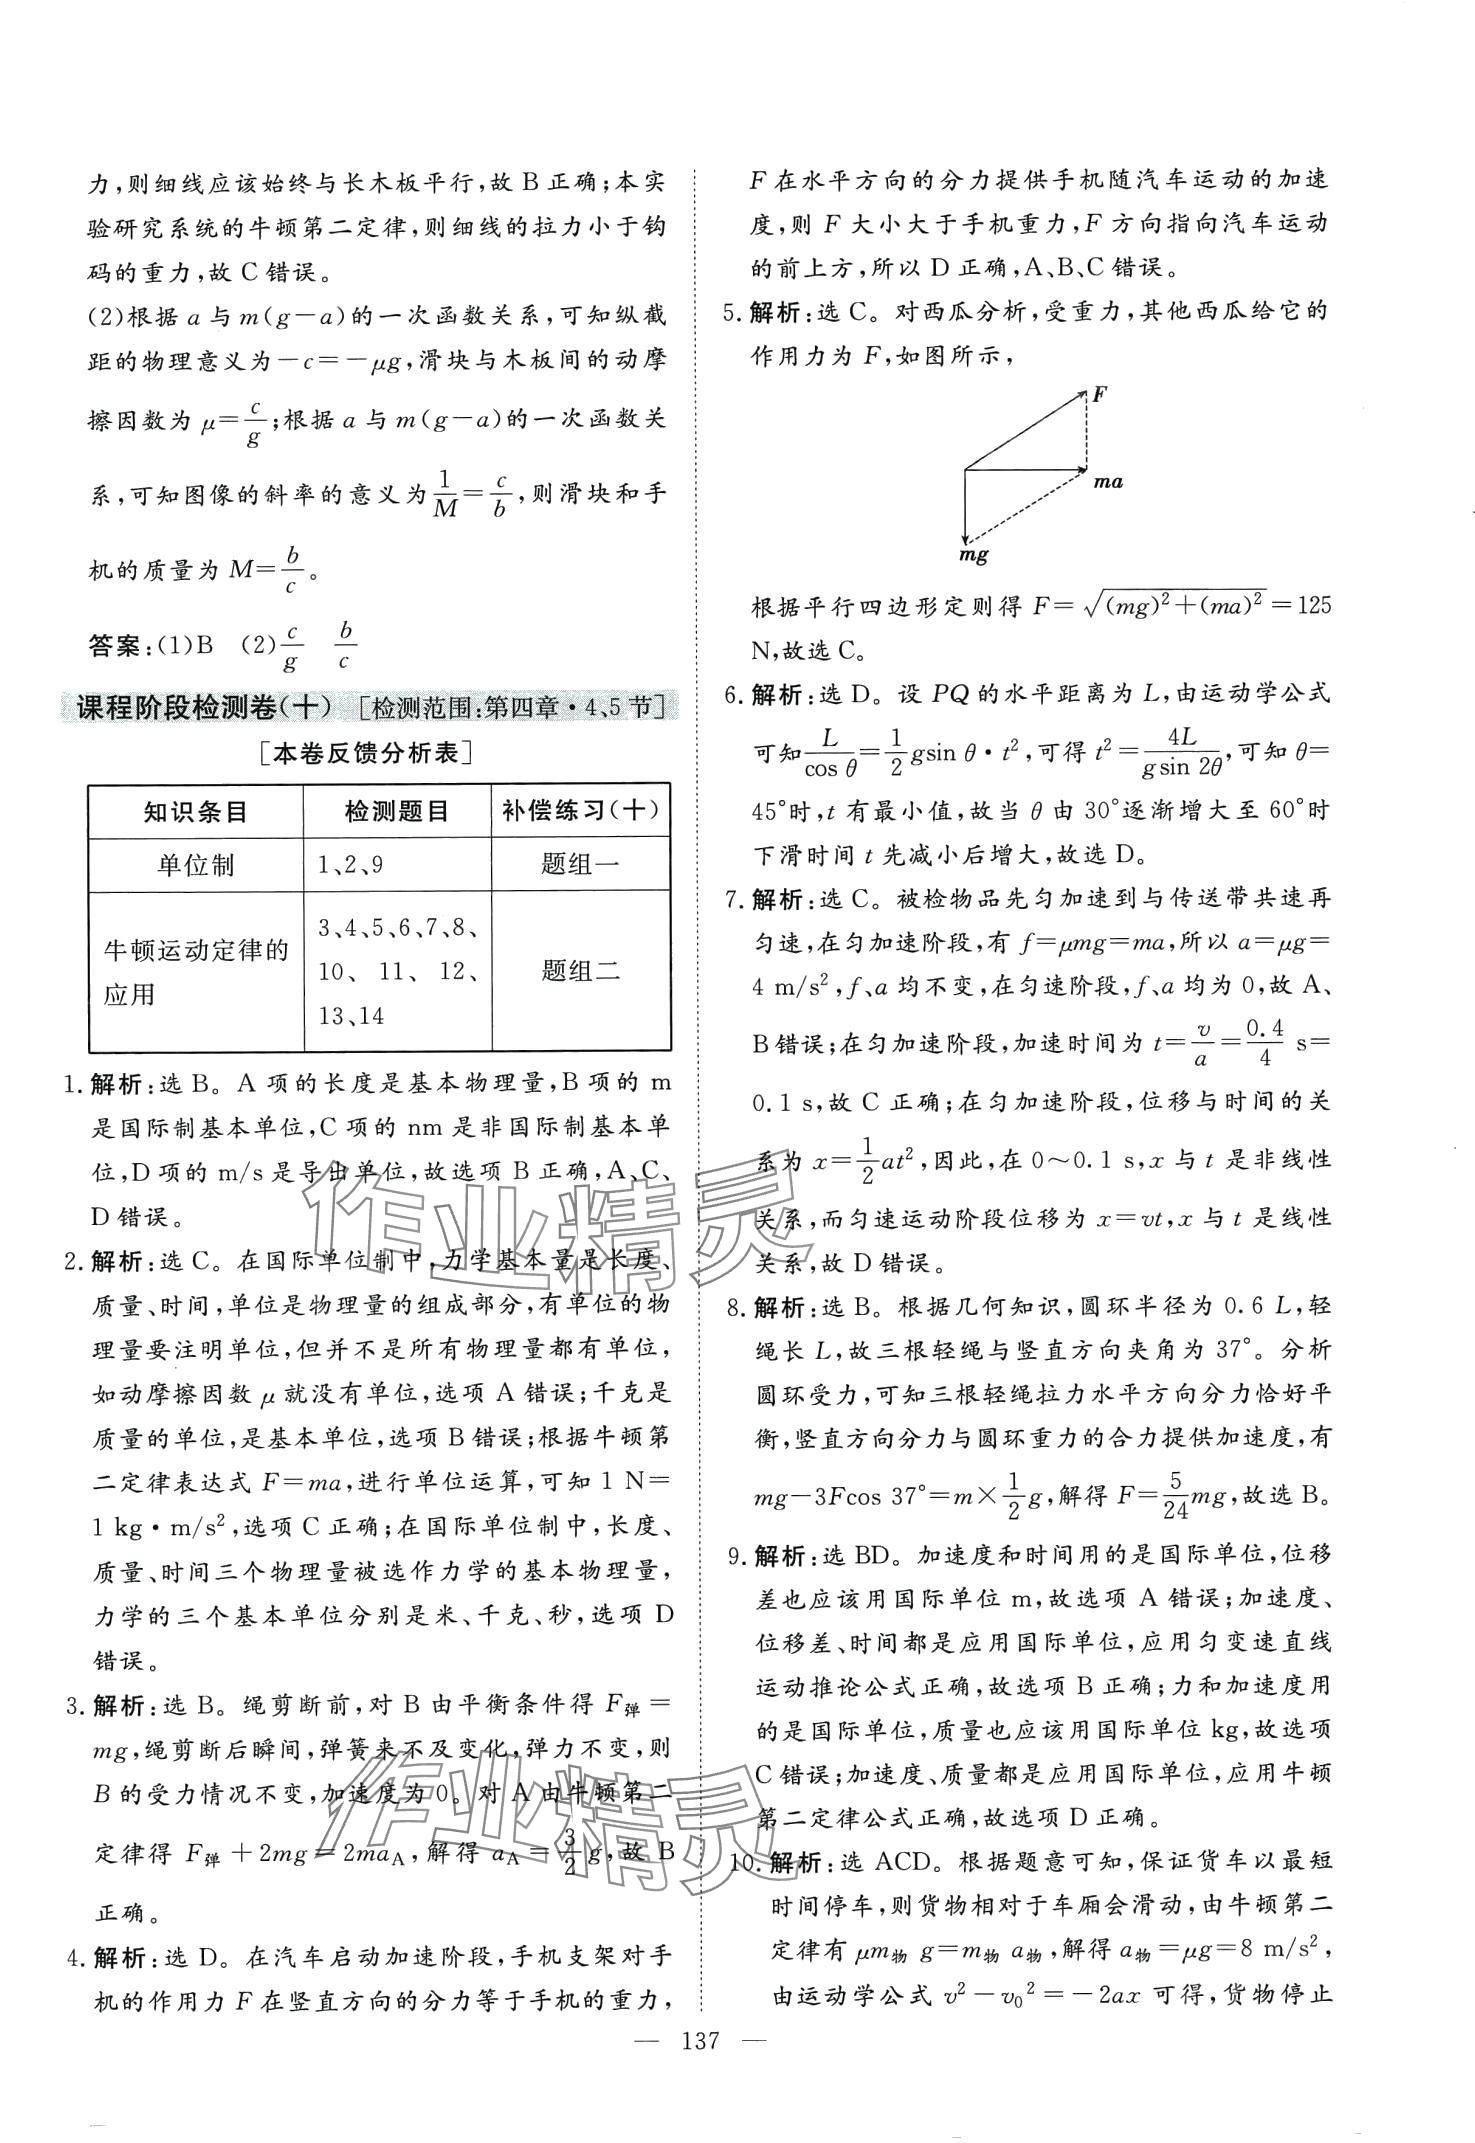 力,则细线应该始终与长木板平行,故 B 正确;本实
验研究系统的牛顿第二定律,则细线的拉力小于钩
码的重力,故 C 错误。
(2)根据 a 与 m(g-a)的一次函数关系,可知纵截
距的物理意义为-c=-μg,滑块与木板间的动摩
擦因数为 μ=c/g;根据 a 与 m(g-a)的一次函数关
系,可知图像的斜率的意义为1/M=c/b,则滑块和手
机的质量为 M=b/c。
答案:(1)B (2)c/g b/c
课程阶段检测卷(十) [检测范围:第四章·4、5节]
[本卷反馈分析表]
知识条目 检测题目 补偿练习(十)
单位制 1、2、9 题组一
牛顿运动定律的应用 3、4、5、6、7、8、10、11、12、13、14 题组二
1. 解析:选 B。A 项的长度是基本物理量,B 项的 m
是国际制基本单位,C 项的 nm 是非国际制基本单
位,D 项的 m/s 是导出单位,故选项 B 正确,A、C、
D 错误。
2. 解析:选 C。在国际单位制中,力学基本量是长度、
质量、时间,单位是物理量的组成部分,有单位的物
理量要注明单位,但并不是所有物理量都有单位,
如动摩擦因数 μ 就没有单位,选项 A 错误;千克是
质量的单位,是基本单位,选项 B 错误;根据牛顿第
二定律表达式 F=ma,进行单位运算,可知 1 N=
1 kg·m/s²,选项 C 正确;在国际单位制中,长度、
质量、时间三个物理量被选作力学的基本物理量,
力学的三个基本单位分别是米、千克、秒,选项 D
错误。
3. 解析:选 B。绳剪断前,对 B 由平衡条件得 F弹=
mg,绳剪断后瞬间,弹簧来不及变化,弹力不变,则
B 的受力情况不变,加速度为 0。对 A 由牛顿第二
定律得 F弹+2mg=2maA,解得 aA=3/2g,故 B
正确。
4. 解析:选 D。在汽车启动加速阶段,手机支架对手
机的作用力 F 在竖直方向的分力等于手机的重力,
F 在水平方向的分力提供手机随汽车运动的加速
度,则 F 大小大于手机重力,F 方向指向汽车运动
的前上方,所以 D 正确,A、B、C 错误。
5. 解析:选 C。对西瓜分析,受重力,其他西瓜给它的
作用力为 F,如图所示,
F
ma
mg
根据平行四边形定则得 F=√((mg)²+(ma)²)=125
N,故选 C。
6. 解析:选 D。设 PQ 的水平距离为 L,由运动学公式
可知L/cos θ=1/2gsin θ·t²,可得 t²=4L/gsin 2θ,可知 θ=
45°时,t 有最小值,故当 θ 由 30°逐渐增大至 60°时
下滑时间 t 先减小后增大,故选 D。
7. 解析:选 C。被检物品先匀加速到与传送带共速再
匀速,在匀加速阶段,有 f=μmg=ma,所以 a=μg=
4 m/s²,f、a 均不变,在匀速阶段,f、a 均为 0,故 A、
B 错误;在匀加速阶段,加速时间为 t=v/a=0.4/4 s=
0.1 s,故 C 正确;在匀加速阶段,位移与时间的关
系为 x=1/2at²,因此,在 0～0.1 s,x 与 t 是非线性
关系,而匀速运动阶段位移为 x=vt,x 与 t 是线性
关系,故 D 错误。
8. 解析:选 B。根据几何知识,圆环半径为 0.6 L,轻
绳长 L,故三根轻绳与竖直方向夹角为 37°。分析
圆环受力,可知三根轻绳拉力水平方向分力恰好平
衡,竖直方向分力与圆环重力的合力提供加速度,有
mg-3Fcos 37°=m×1/2g,解得 F=5/24mg,故选 B。
9. 解析:选 BD。加速度和时间用的是国际单位,位移
差也应该用国际单位 m,故选项 A 错误;加速度、
位移差、时间都是应用国际单位,应用匀变速直线
运动推论公式正确,故选项 B 正确;力和加速度用
的是国际单位,质量也应该用国际单位 kg,故选项
C 错误;加速度、质量都是应用国际单位,应用牛顿
第二定律公式正确,故选项 D 正确。
10. 解析:选 ACD。根据题意可知,保证货车以最短
时间停车,则货物相对于车厢会滑动,由牛顿第二
定律有 μm物 g=m物 a物,解得 a物=μg=8 m/s²,
由运动学公式 v²-v₀²=-2ax 可得,货物停止
— 137 —
作业精灵
作业精灵